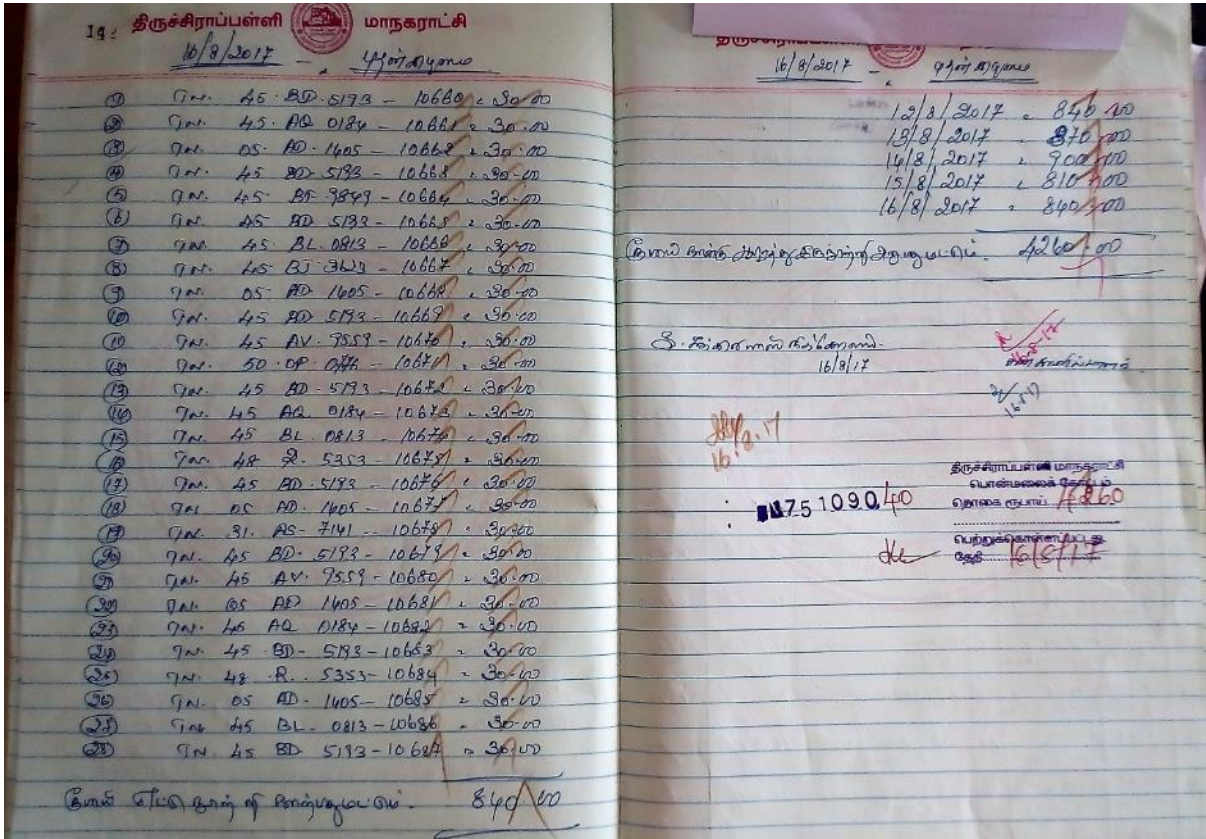 14. திருச்சிராப்பள்ளி மாநகராட்சி
16/8/2017 - புதன்கிழமை
① TN. 45. BD. 5193 - 10660 = 30.00
② TN. 45. AQ 0184 - 10661 = 30.00
③ TN. 05. AD. 1405 - 10662 = 30.00
④ TN. 45 BD. 5193 - 10663 = 30.00
⑤ TN. 45. 9849 - 10664 = 30.00
⑥ TN. 45 BD 5193 - 10665 = 30.00
⑦ TN. 45. BL. 0813 - 10666 = 30.00
⑧ TN. 45 - 10667 = 30.00
⑨ TN. 05. AD 1405 - 10668 = 30.00
⑩ TN. 45 BD 5193 - 10669 = 30.00
⑪ TN. 45 AV. 9559 - 10670 = 30.00
⑫ TN. 50. - 10671 = 30.00
⑬ TN. 45 BD - 5193 - 10672 = 30.00
⑭ TN. 45 AQ 0184 - 10673 = 30.00
⑮ TN. 45 BL. 0813 - 10674 = 30.00
⑯ TN. 48 R. 5353 - 10675 = 30.00
⑰ TN. 45 BD. 5193 - 10676 = 30.00
⑱ TN 05 AD. 1405 - 10677 = 30.00
⑲ TN. 31. AS - 7141 - 10678 = 30.00
⑳ TN. 45 BD - 5193 - 10679 = 30.00
㉑ TN. 45 AV. 9559 - 10680 = 30.00
㉒ TN. 05 AD 1405 - 10681 = 30.00
㉓ TN. 45 AQ 0184 - 10682 = 30.00
㉔ TN. 45 BD - 5193 - 10683 = 30.00
㉕ TN. 48 R. 5353 - 10684 = 30.00
㉖ TN. 05 AD. 1405 - 10685 = 30.00
㉗ TN 45 BL. 0813 - 10686 = 30.00
㉘ TN. 45 BD 5193 - 10687 = 30.00
ரூபாய் எட்டு நூற்றி நாற்பது மட்டும். 840.00
16/8/2017 - புதன்கிழமை
12/8/2017 = 840.00
13/8/2017 = 870.00
14/8/2017 = 900.00
15/8/2017 = 810.00
16/8/2017 = 840.00
ரூபாய் நான்கு ஆயிரத்து இருநூற்றி அறுபது மட்டும். 4260.00
16/8/17
16.8.17
75 1090 40
திருச்சிராப்பள்ளி மாநகராட்சி
பொன்மலைக் கோட்டம்
தொகை ரூபாய் 4260
பெற்றுக்கொள்ளப்பட்டது
தேதி 16/8/17